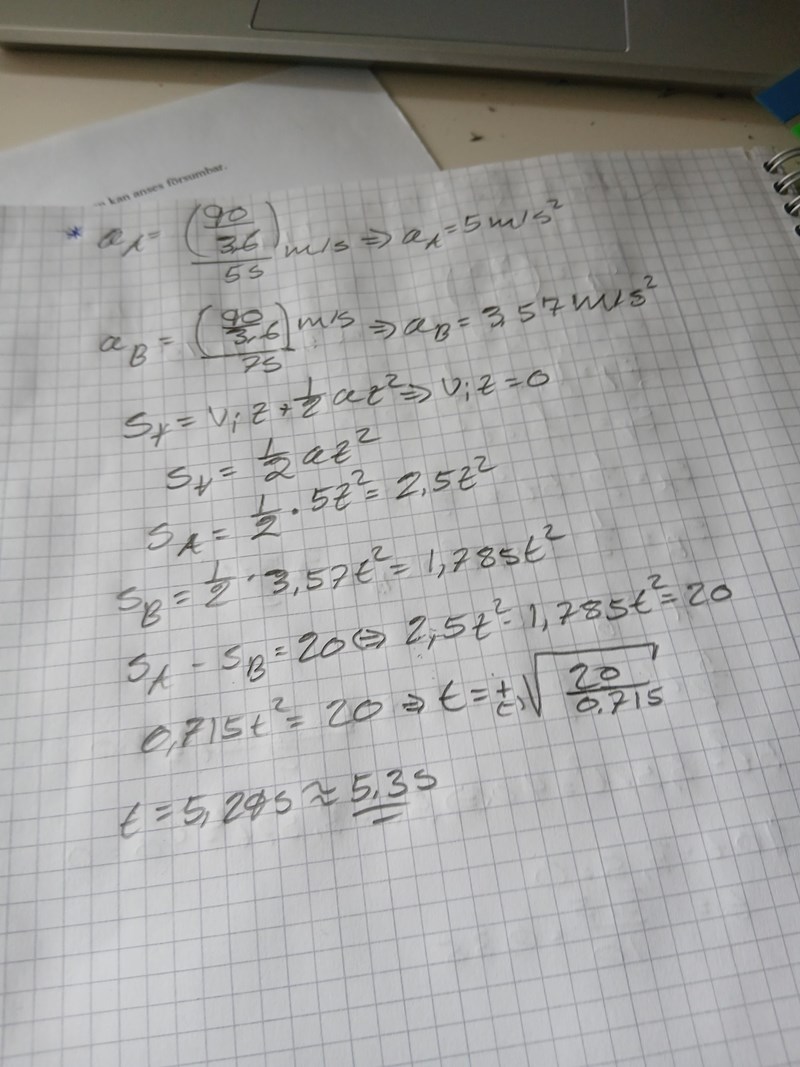 kan anses försumbar.
* a_A = (90/3,6)/5s m/s ⇒ a_A = 5 m/s²
a_B = (90/3,6) m/s /7s ⇒ a_B = 3,57 m/s²
S_t = v_i t + 1/2 at² ⇒ v_i t = 0
S_t = 1/2 at²
S_A = 1/2 · 5t² = 2,5t²
S_B = 1/2 · 3,57t² = 1,785t²
S_A - S_B = 20 ⇔ 2,5t² - 1,785t² = 20
0,715t² = 20 ⇒ t = ±√(20/0,715)
t = 5,28s ≈ 5,3s